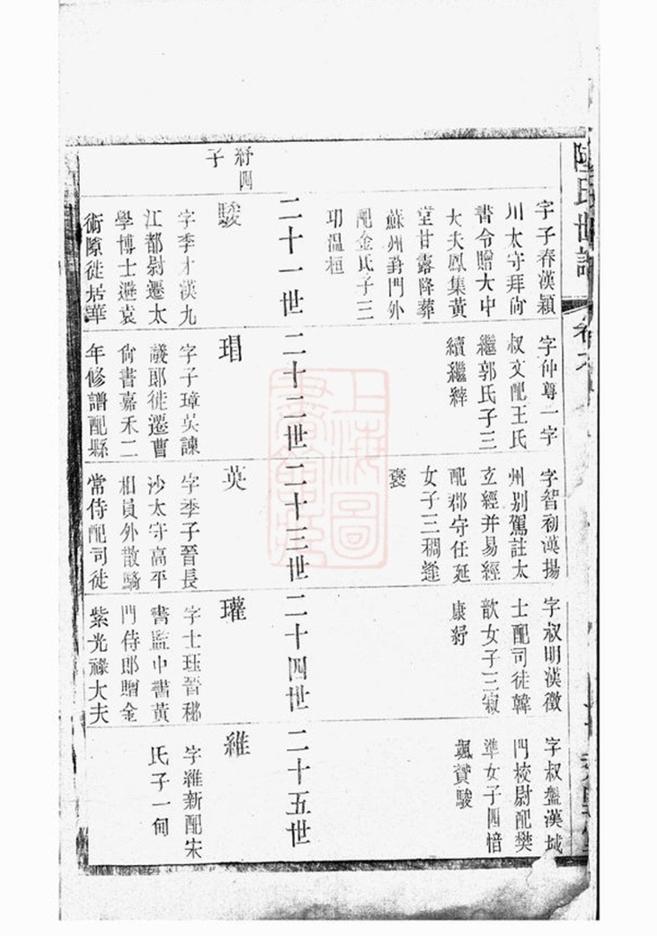 陸氏世譜
字子春漢潁
川太守拜尙
書令贈大中
大夫鳳集黃
堂甘露降葬
蘇州葑門外
配金氏子三
邛溫桓
字仲尊一字
叔文配王氏
繼郭氏子三
續繼綷
字智初漢揚
州别駕註太
玄經并易經
配郡守任延
女子三稠逢
襃
字叔明漢徵
士配司徒韓
歆女子三寂
康紓
字叔盤漢城
門校尉配樊
準女子四愔
颯贊駿
二十一世
二十二世
二十三世
二十四世
二十五世
紓四
子
駿
字季才漢九
江都尉遷太
學博士避袁
術隙徙居華
瑁
字子璋吳諫
議郎徙遷曹
尙書嘉禾二
年修譜配縣
英
字季子晉長
沙太守高平
相員外散騎
常侍配司徒
瓘
字士珪晉秘
書監中書黃
門侍郎贈金
紫光祿大夫
維
字維新配宋
氏子一甸
上海圖
書館藏